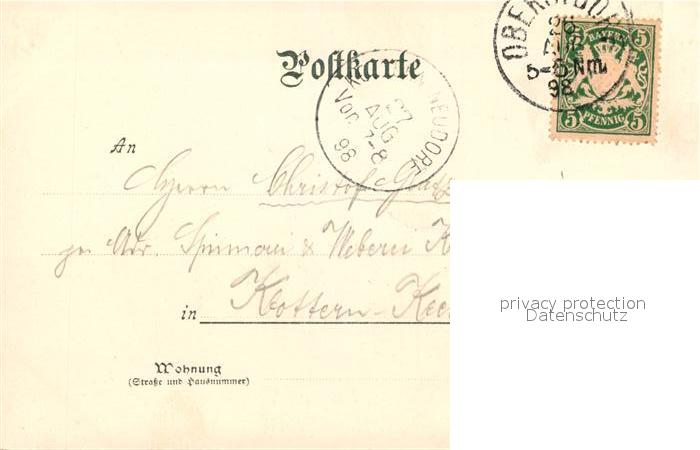 Postkarte
OBER
26
AUG
5-6 Nm.
98
5 BAYERN 5
5 PFENNIG 5
NEUDORF
27
AUG
Vor. 7-8
98
An
Herrn Christof
pr. Adr. Spinnerei & Weberei
in Kottern-
Wohnung
(Straße und Hausnummer)
privacy protection
Datenschutz